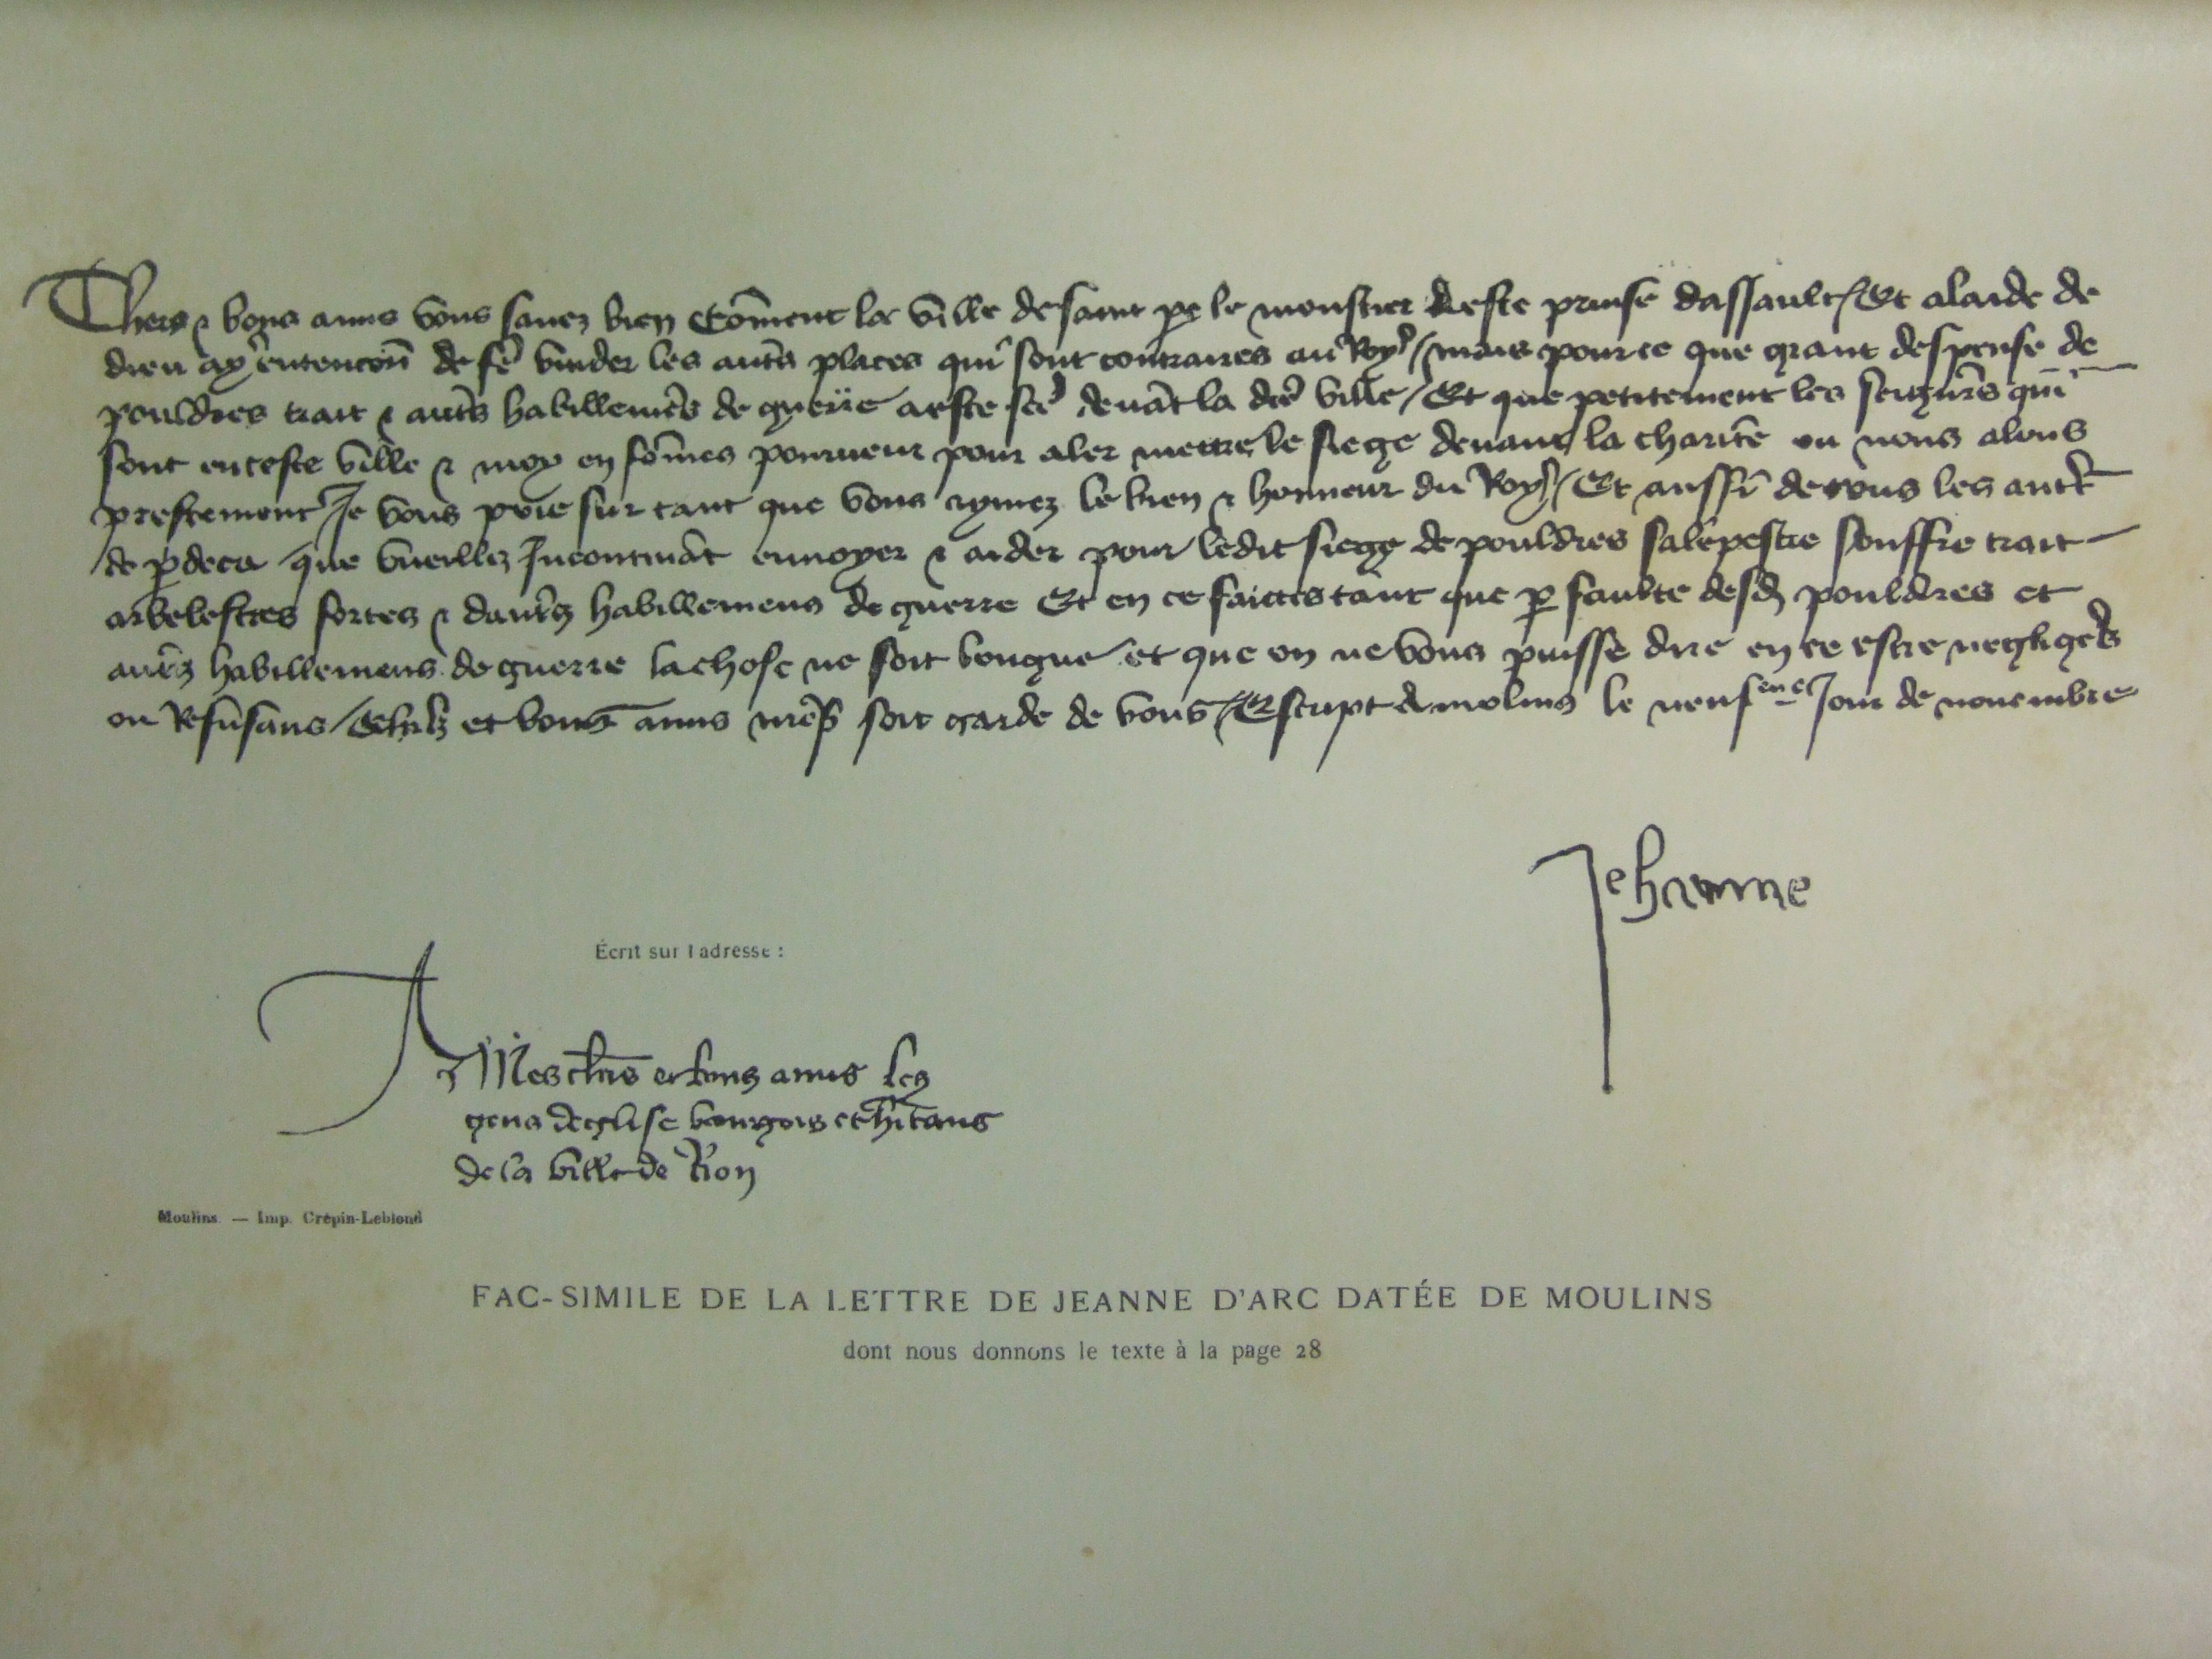 Chers & bons amis vous savez bien comment la ville de saint pe le moustier a este prinse dassault / Et alaide de
dieu ay entencon de fe vuider les auts places qui sont contraires au Roy / mais pource que grant despense de
pouldres trait & auts habillemes de guerre a este fce devat la dce ville / Et que petitement les seignrs qui
sont en ceste ville & moy en somes pourveuz pour aler mettre le siege devant la charite ou nous alons
prestement / Je vous prie sur tant que vous aymez le bien & honneur du Roy / Et aussi de tous les autr
de p deca que vueillez Incontinat envoyer & aider pour ledit siege de pouldres salepestre souffre trait
arbelestres fortes & dautrs habillemens de guerre Et en ce faictes tant que p faulte desd pouldres et
autrs habillemens de guerre la chose ne soit longue et que on ne vous puisse dire en ce estre negligets
ou Refusans / Chrs et bons amis nre s soit garde de vous / Escript a molins le neufeme Jour de novembre
Jehanne
Écrit sur l'adresse :
A Mes chrs et bons amis les
gens deglise bourgois et hitans
de la ville de Rion
Moulins. — Imp. Crépin-Leblond
FAC-SIMILE DE LA LETTRE DE JEANNE D'ARC DATÉE DE MOULINS
dont nous donnons le texte à la page 28